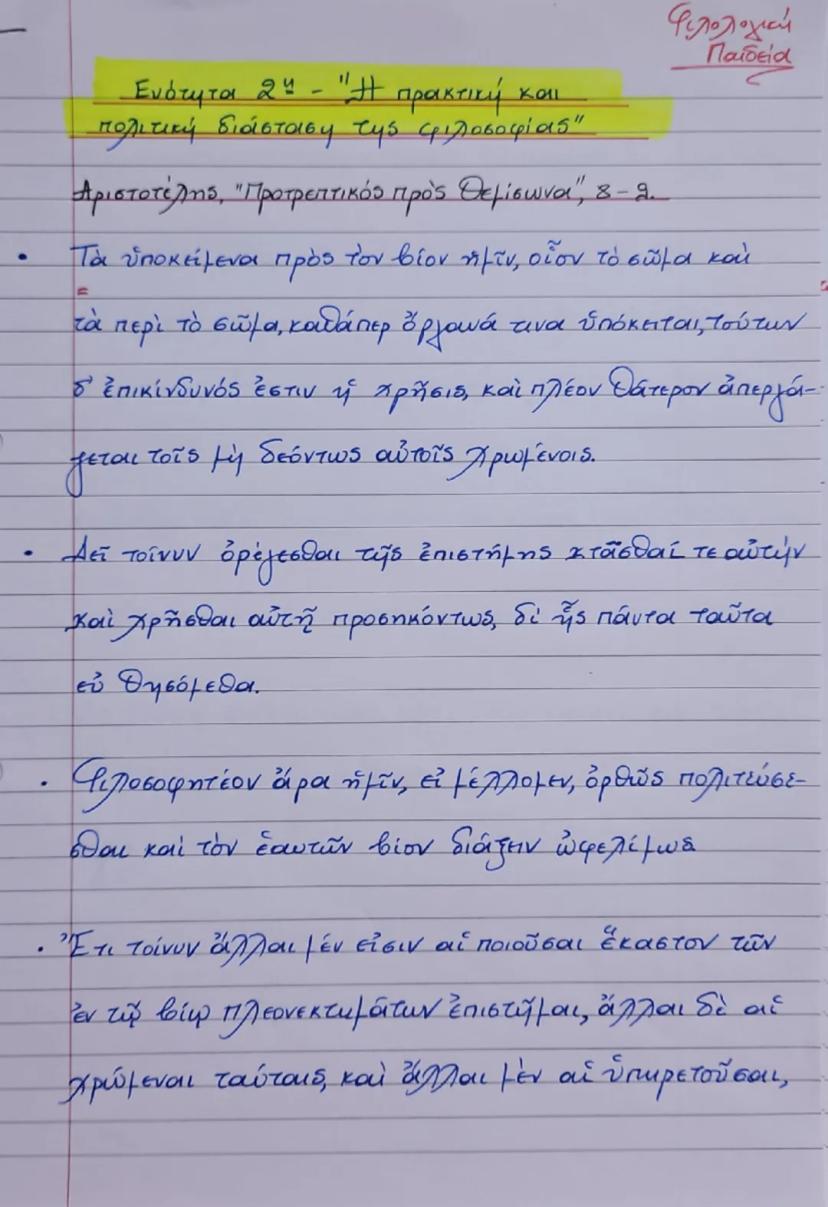 Φιλολογική
Παιδεία
Ενότητα 2η - "Η πρακτική και
πολιτική διάσταση της φιλοσοφίας"
Αριστοτέλης, "Προτρεπτικός πρὸς Θεμίσωνα", 8-9.
• Τὰ ὑποκείμενα πρὸς τὸν βίον ἡμῖν, οἷον τὸ σῶμα καὶ
τὰ περὶ τὸ σῶμα, καθάπερ ὄργανά τινα ὑπόκειται, τούτων
δ' ἐπικίνδυνός ἐστιν ἡ χρῆσις, καὶ πλέον θάτερον ἀπεργά-
ζεται τοῖς μὴ δεόντως αὐτοῖς χρωμένοις.
• Δεῖ τοίνυν ὀρέγεσθαι τῆς ἐπιστήμης κτᾶσθαί τε αὐτήν
καὶ χρῆσθαι αὐτῇ προσηκόντως, δι' ἧς πάντα ταῦτα
εὖ θησόμεθα.
• Φιλοσοφητέον ἄρα ἡμῖν, εἰ μέλλομεν, ὀρθῶς πολιτεύσε-
σθαι καὶ τὸν ἑαυτῶν βίον διάξειν ὠφελίμως
• Ἔτι τοίνυν ἄλλαι μέν εἰσιν αἱ ποιοῦσαι ἕκαστον τῶν
ἐν τῷ βίῳ πλεονεκτημάτων ἐπιστῆμαι, ἄλλαι δὲ αἱ
χρώμεναι ταύταις, καὶ ἄλλαι μὲν αἱ ὑπηρετοῦσαι,